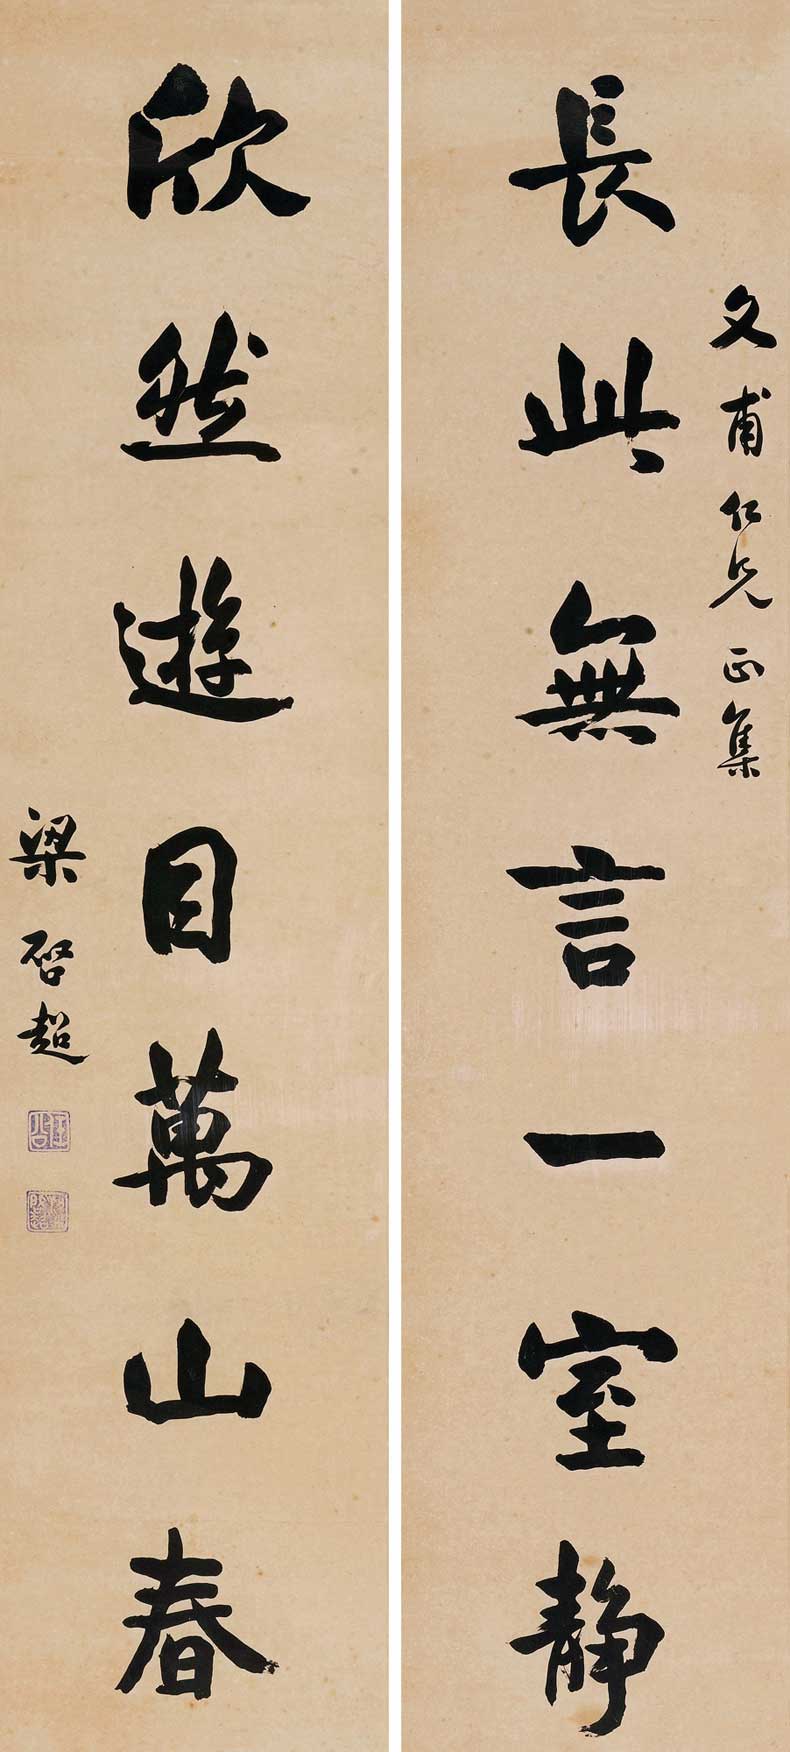 文甫仁兄正集
長此無言一室静
欣然遊目萬山春
梁啓超